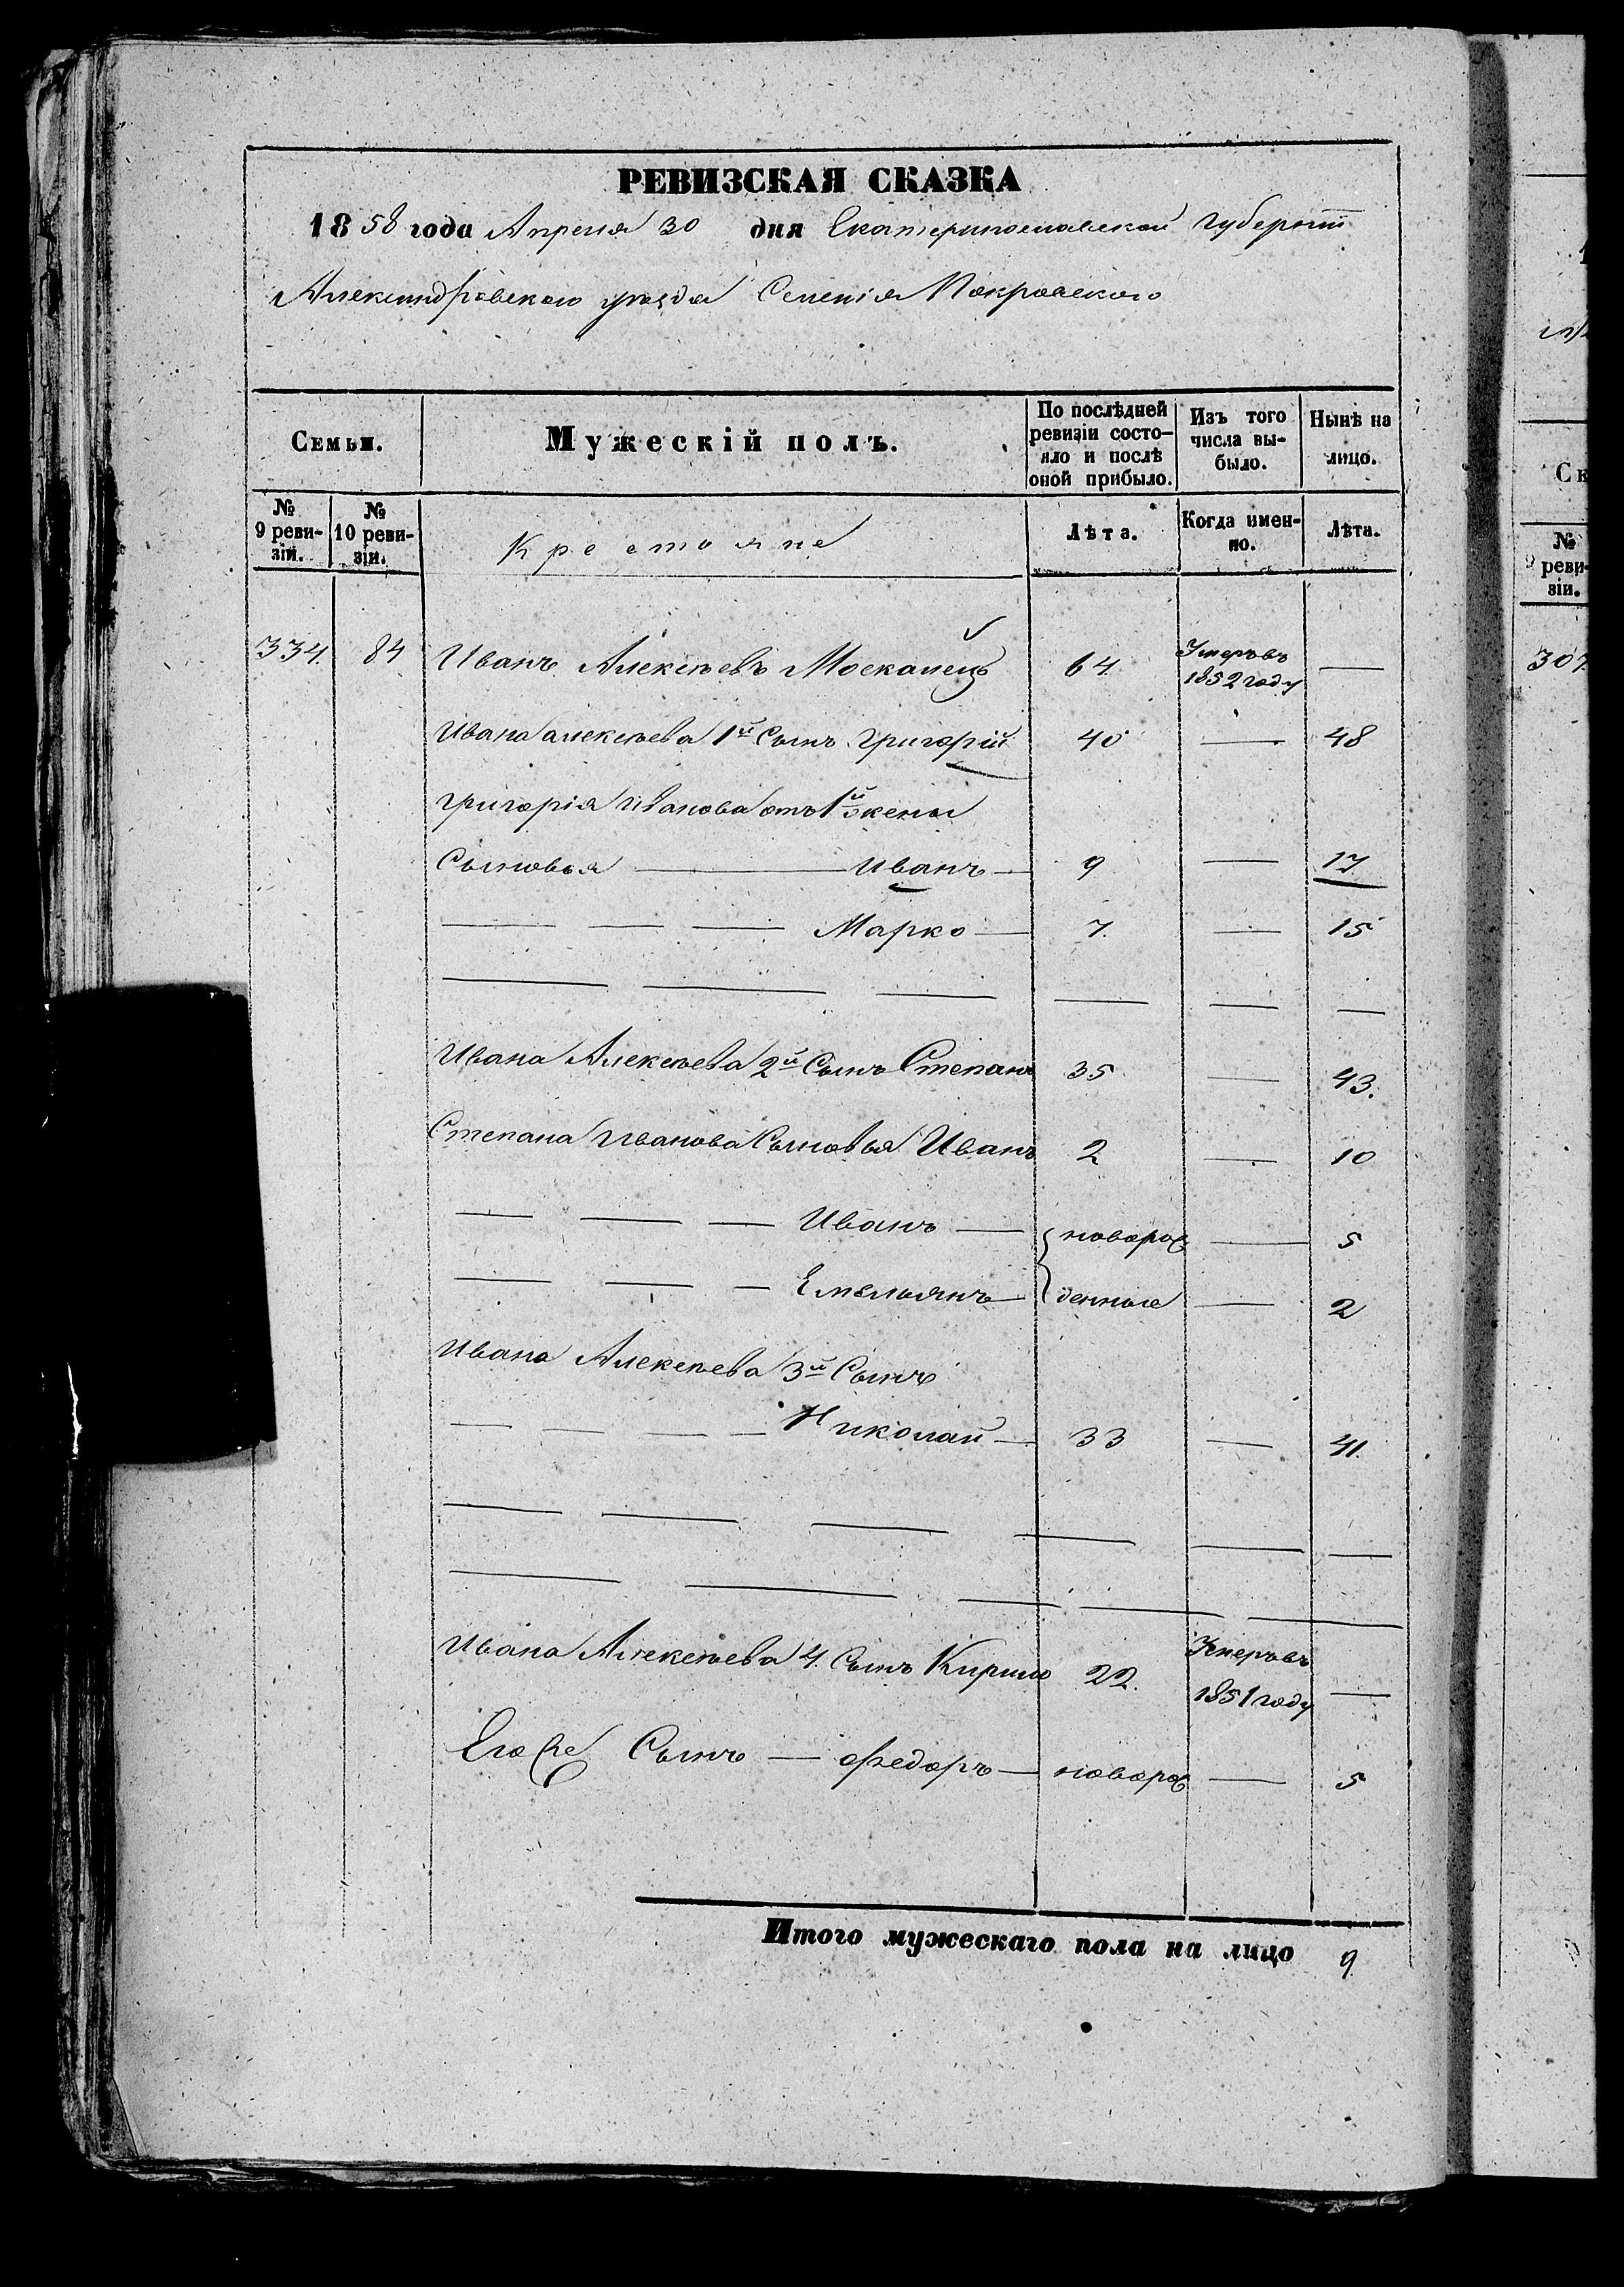 РЕВИЗСКАЯ СКАЗКА
1858 года Апреля 30 дня Екатеринославской губернiи
Александровского уезда Селенiя Покровского
Семьи.
Мужескiй полъ.
По послѣдней ревизiи состо-
яло и послѣ
оной прибыло.
Изъ того
числа вы-
было.
Нынѣ на
лицо.
№
9 реви-
зiи.
№
10 реви-
зiи.
Крестьяне
Лѣта.
Когда имен-
но.
Лѣта.
334. 84 Иванъ Алексѣевъ Москалецъ 64 Умеръ въ
1852 году —
Ивана Алексѣева 1й Сынъ Григорiй 40 — 48
Григорiя Иванова отъ 1й жены
Сыновья — Иванъ — 9 — 17
— — — Марко — 7. — 15
Ивана Алексѣева 2й Сынъ Степанъ 35 — 43.
Степана Иванова Сыновья Иванъ 2 — 10
— — — Иванъ — новорож — 5
— — — Емельянъ — денные — 2
Ивана Алексѣева 3й Сынъ
— — — — Николай — 33 — 41.
Ивана Алексѣева 4. Сынъ Кирило 22. Умеръ въ
1851 году —
Его же Сынъ — Федоръ — новорож — 5
Итого мужескаго пола на лицо 9
Ск
№
9 реви-
зiи.
307